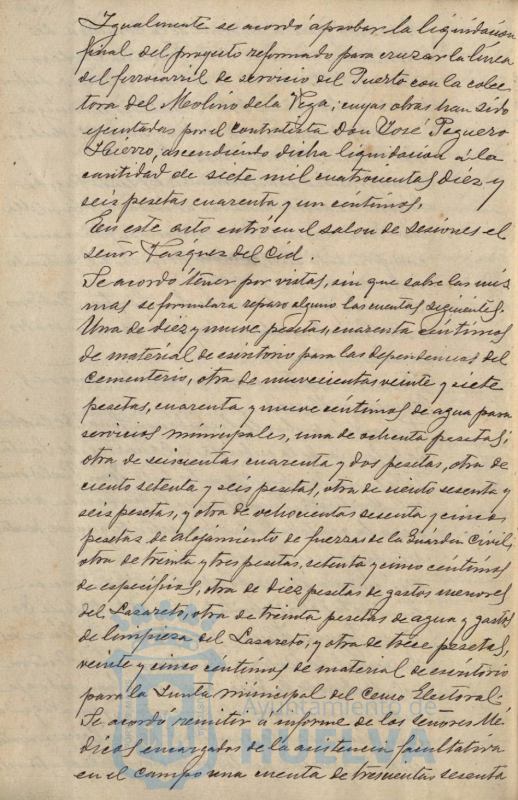 Igualmente se acordó aprobar la liquidación
final del proyecto reformado para cruzar la línea
del ferrocarril de servicio del Puerto con la colec
tora del Molino de la Vega; cuyas obras han sido
ejecutadas por el contratista Don José Peguero
Hierro, ascendiendo dicha liquidación á la
cantidad de siete mil cuatrocientas diez y
seis pesetas cuarenta y un centimos.
En este acto entró en el salon de sesiones el
señor Vasquez del Cid.
Se acordó tener por vistas, sin que sobre las mis
mas se formulara reparo alguno las cuentas siguientes.
Una de diez y nueve pesetas, cuarenta céntimos
de material de escritorio para las dependencias del
Cementerio, otra de nuevecientas veinte y siete
pesetas, cuarenta y nueve céntimos de agua para
servicios municipales, una de ochenta pesetas;
otra de seiscientas cuarenta y dos pesetas, otra de
ciento setenta y seis pesetas, otra de ciento sesenta y
seis pesetas, y otra de ochocientas sesenta y cinco
pesetas de alojamiento de fuerzas de la Guardia Civil;
otra de treinta y tres pesetas, setenta y cinco céntimos
de especificos, otra de diez pesetas de gastos menores
del Lazareto, otra de treinta pesetas de agua y gastos
de limpieza del Lazareto; y otra de trece pesetas,
veinte y cinco céntimos de material de escritorio
para la Junta municipal del Censo Electoral.
Se acordó remitir á informe de los señores Mé
dicos encargados de la asistencia facultativa
en el campo una cuenta de trescientas sesenta
Ayuntamiento de
HUELVA